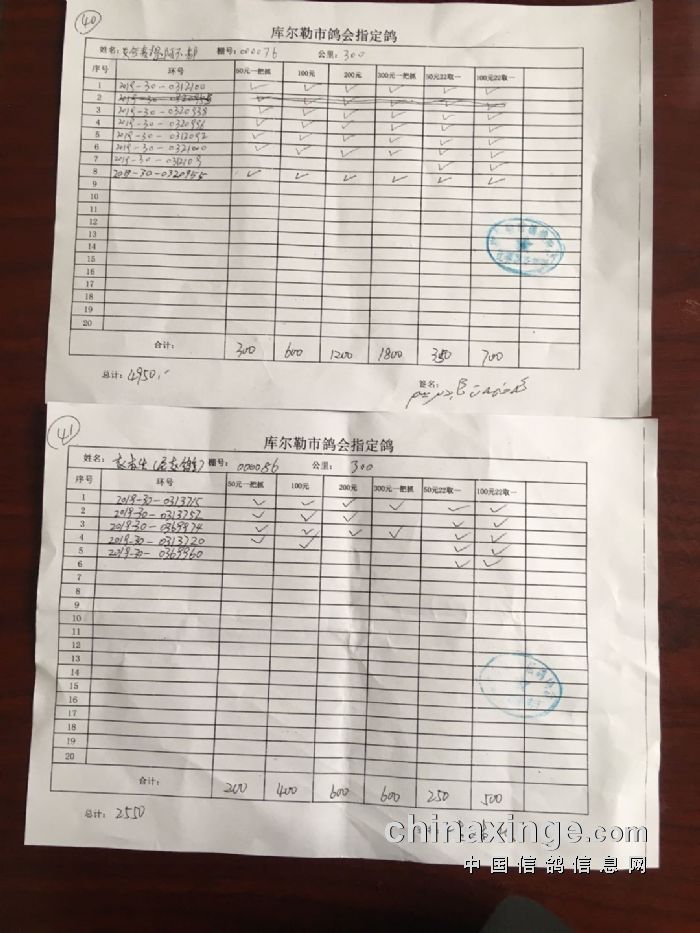 40
库尔勒市鸽会指定鸽
姓名: 棚号: 000076 公里: 300
序号 环号 50元一把抓 100元 200元 300元一把抓 50元22取一 100元22取一
1 2019-30-0312100 ✓ ✓ ✓ ✓ ✓ ✓
2 2019-30-
3 2019-30-0320938 ✓ ✓ ✓ ✓ ✓ ✓
4 2019-30-0320996 ✓ ✓ ✓ ✓ ✓ ✓
5 2019-30-0312092 ✓ ✓ ✓ ✓ ✓ ✓
6 2019-30-0321000 ✓ ✓ ✓ ✓ ✓ ✓
7 2019-30- ✓ ✓
8 2019-30-0320955 ✓ ✓ ✓ ✓ ✓ ✓
9
10
11
12
13
14
15
16
17
18
19
20
合计: 300 600 1200 1800 350 700
总计: 4950.- 签名:
41
库尔勒市鸽会指定鸽
姓名: 棚号: 000086 公里: 300
序号 环号 50元一把抓 100元 200元 300元一把抓 50元22取一 100元22取一
1 2019-30-0313715 ✓ ✓ ✓ ✓ ✓ ✓
2 2019-30-0313752 ✓ ✓ ✓ ✓ ✓
3 2019-30-0369974 ✓ ✓ ✓ ✓ ✓ ✓
4 2019-30-0313720 ✓ ✓ ✓ ✓
5 2019-30-0369960 ✓ ✓
6
7
8
9
10
11
12
13
14
15
16
17
18
19
20
合计: 200 400 600 600 250 500
总计: 2550
chinaxinge.com
中国信鸽信息网